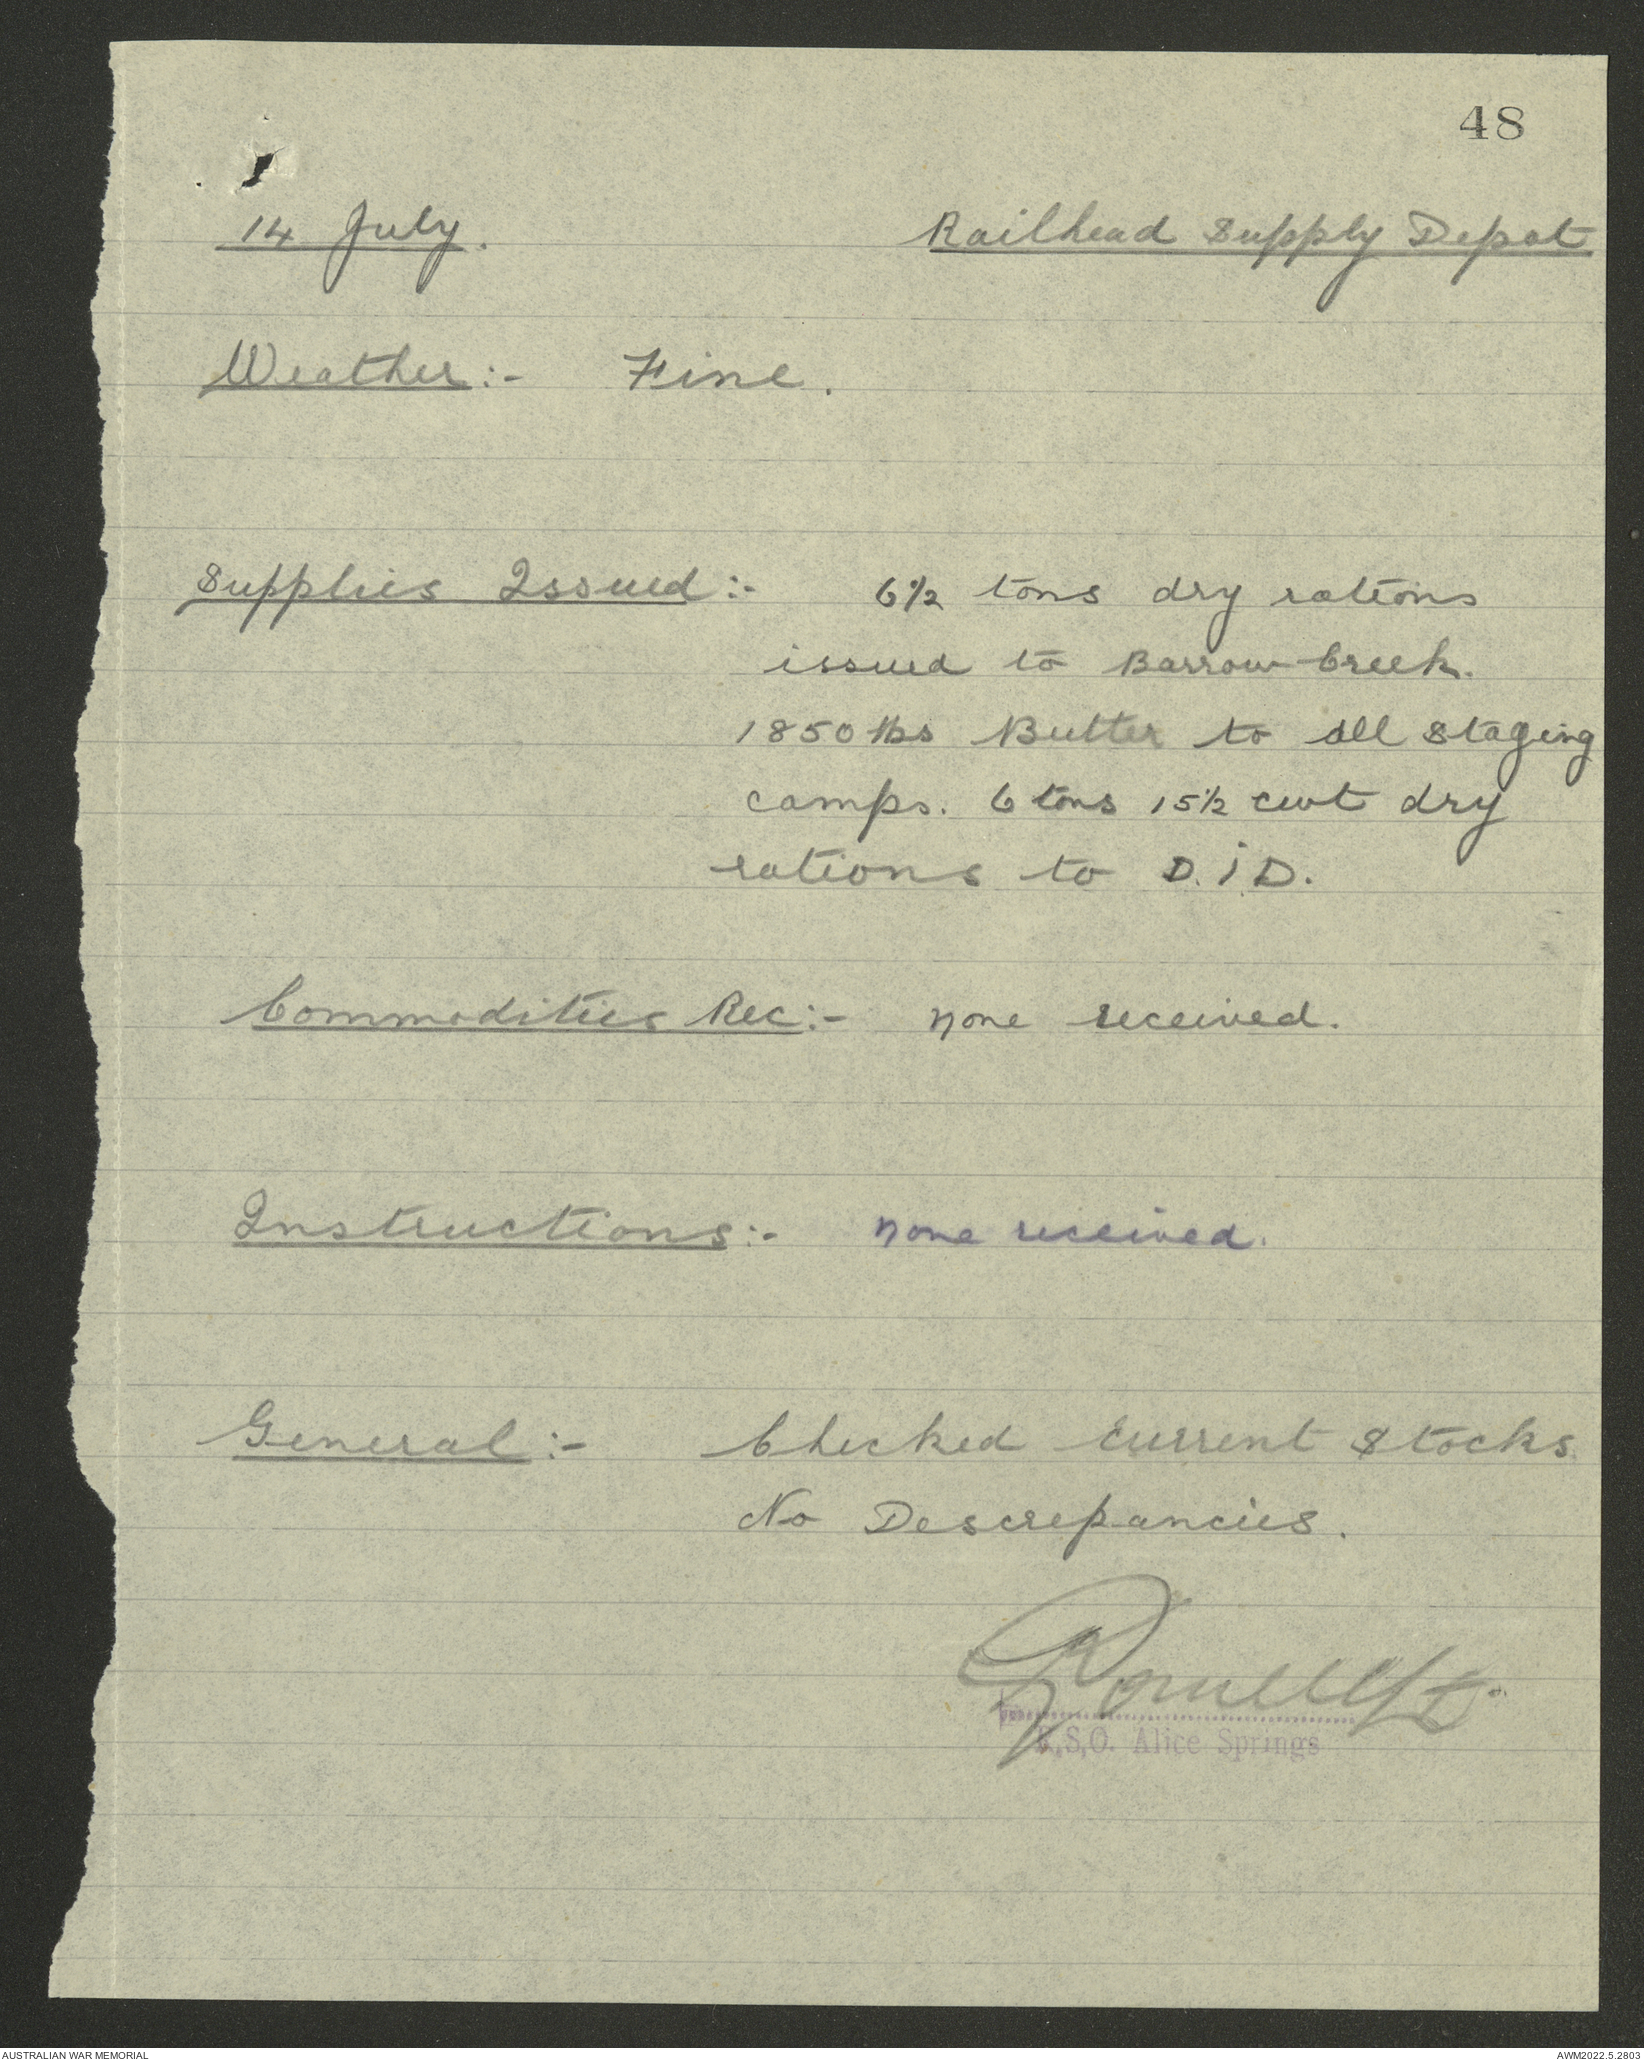 48
14 July.
Railhead Supply Depot
Weather:- Fine.
Supplies Issued:- 6½ tons dry rations
issued to Barrow Creek.
1850 lbs Butter to all staging
camps. 6 tons 15½ cwt dry
rations to D.I.D.
Commodities Rec:- none received.
Instructions:- none received.
General:- Checked current stocks.
No Descrepancies.
R.S.O. Alice Springs
AUSTRALIAN WAR MEMORIAL
AWM2022.5.2803